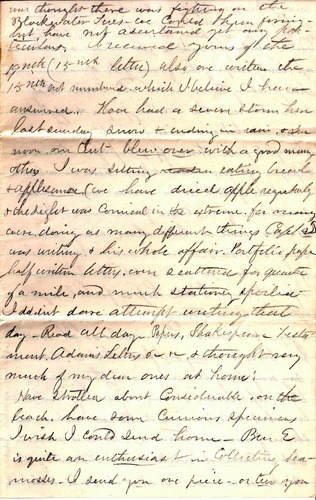 thought there was fighting on the
Blackwater River - we could hear firing
but have not ascertained yet any par
ticulars, I received yours of the
(15 nth letter) also one written the
15 nth not numbered, which I believe I have
answered. Have had a severe storm here
last sunday snow & ending in rain. & in
noon our tent blew over with a good many
others I was sitting eating bread
& applesauce (we have dried apple regularly
& the sight was comical in the extreme. for
doing as many different things Capt
was writing & his whole affair. Portfolio pape
half written letters, were scattered for quarter
of a mile, and much stationery spoiled
I didnt dare attempt writing that
day - Read all day - Papers, Shakespeare Testa
ment, Adams Letter & & thought very
much of my dear ones at home!
Have strolled about considerable on the
beach. have some curious specimens
I wish I could send home - Ben E
is quite an enthusiast in collecting sea-
mosses. I send you one piece - or two you